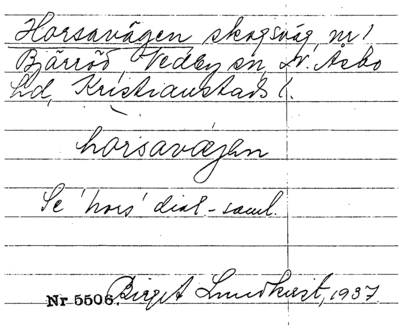 Horsavägen skogsväg, nr 1
Bjärröd, Vedby sn, N. Åsbo
hd, Kristianstads l.
horsavægen
Se 'hors' dial-saml.
Nr 5506. Birgit Lundkvist, 1937